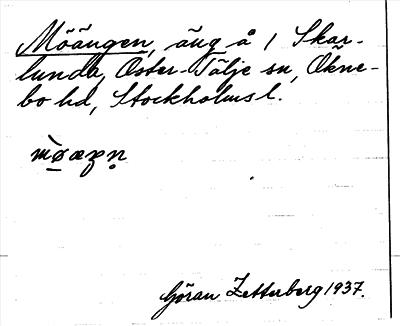 Möängen, äng å 1 Skar-
lunda, Öster-Tälje sn, Ökne-
bo hd, Stockholms l.
Göran Zetterberg 1937.